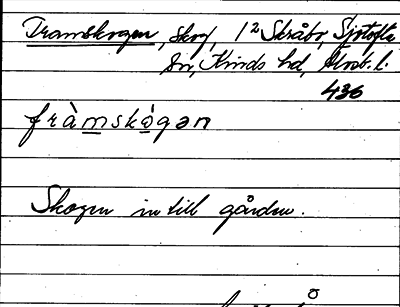 Framskogen, skog, 1² Skråbo, Sjötofta
sn, Kinds hd, Älvsb. l.
436
fràmskógən
Skogen intill gården.